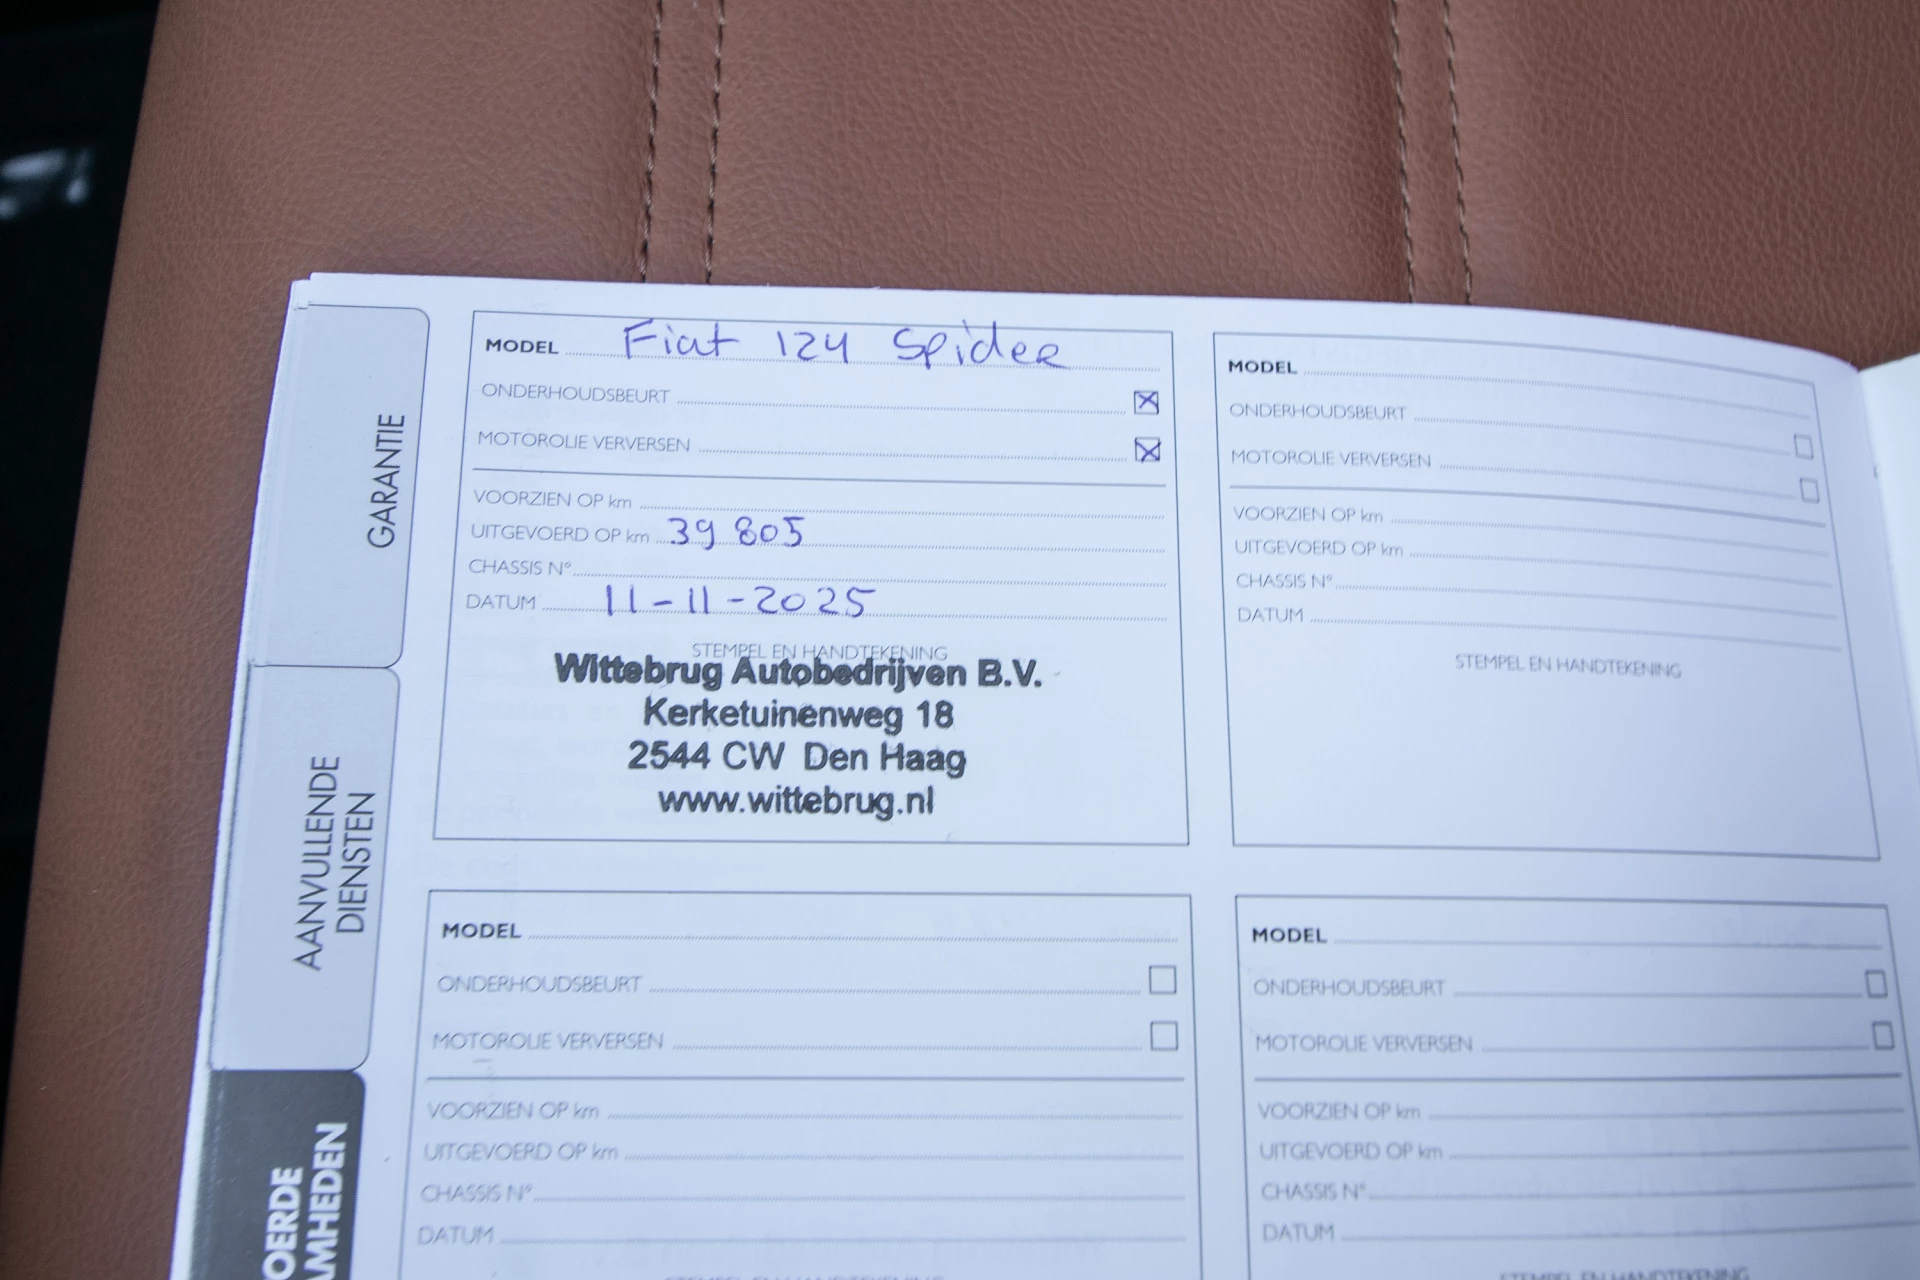 GARANTIE
AANVULLENDE
DIENSTEN
OERDE
AMHEDEN
MODEL Fiat 124 Spider
ONDERHOUDSBEURT
MOTOROLIE VERVERSEN
VOORZIEN OP km
UITGEVOERD OP km 39 805
CHASSIS N°
DATUM 11-11-2025
STEMPEL EN HANDTEKENING
Wittebrug Autobedrijven B.V.
Kerketuinenweg 18
2544 CW Den Haag
www.wittebrug.nl
MODEL
ONDERHOUDSBEURT
MOTOROLIE VERVERSEN
VOORZIEN OP km
UITGEVOERD OP km
CHASSIS N°
DATUM
STEMPEL EN HANDTEKENING
MODEL
ONDERHOUDSBEURT
MOTOROLIE VERVERSEN
VOORZIEN OP km
UITGEVOERD OP km
CHASSIS N°
DATUM
STEMPEL EN HANDTEKENING
MODEL
ONDERHOUDSBEURT
MOTOROLIE VERVERSEN
VOORZIEN OP km
UITGEVOERD OP km
CHASSIS N°
DATUM
STEMPEL EN HANDTEKENING